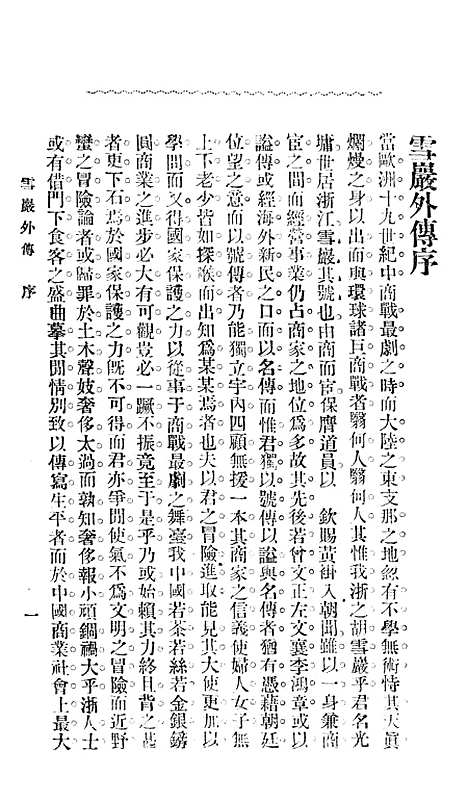 雪巖外傳序
當歐洲十九世紀中商戰最劇之時而大陸之東支那之地忽有不學無術恃其天真
爛熳之身以出而與環球諸巨商戰者翳何人翳何人其惟我浙之胡雪巖乎君名光
墉世居浙江雪巖其號也由商而宦保膺道員以 欽賜黃褂入朝閣雖以一身兼商
宦之間而經營事業仍占商家之地位爲多故其先後若曾文正左文襄李鴻章或以
謚傳或經海外新民之口而以名傳而惟君獨以號傳以謚與名傳者猶有憑藉朝廷
位望之意而以號傳者乃能獨立宇內四顧無援一本其商家之信義使婦人女子無
上下老少皆如探喉而出知爲某某焉者也夫以君之冒險進取能見其大使更加以
學問而又得國家保護之力以從事于商戰最劇之舞臺我中國若茶若絲若金銀鏽
圓商業之進步必大有可觀豈必一蹶不振竟至于是乎乃或始賴其力終且背之甚
者更下石焉於國家保護之力旣不可得而君亦爭閒使氣不爲文明之冒險而近野
蠻之冒險論者或歸罪於土木聲妓奢侈太過而孰知奢侈報小頑錮禍大乎浙人士
或有借門下食客之盛曲摹其閒情別致以傳寫生平者而於中國商業社會上最大
雪巖外傳 序
一